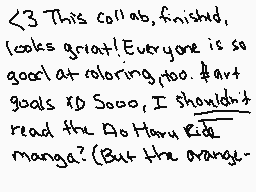 <3 This collab, finished,
looks great! Everyone is so
good at coloring, too. #art
goals XD Sooo, I shouldn't
read the Ao Haru Ride
manga? (But the orange-